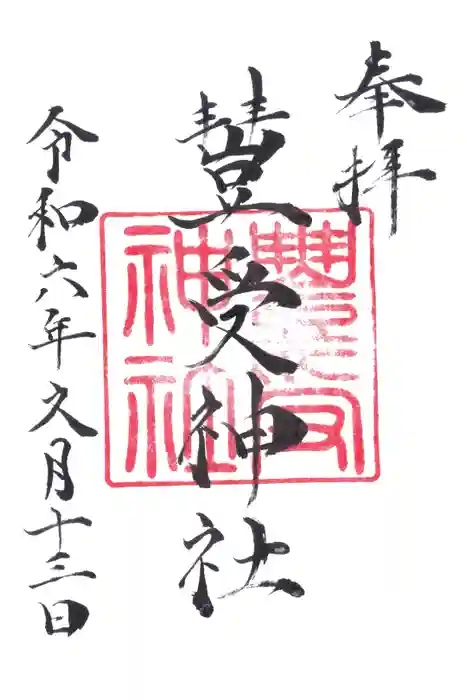 奉拝
豐受神社
令和六年九月十三日
豐受
神社